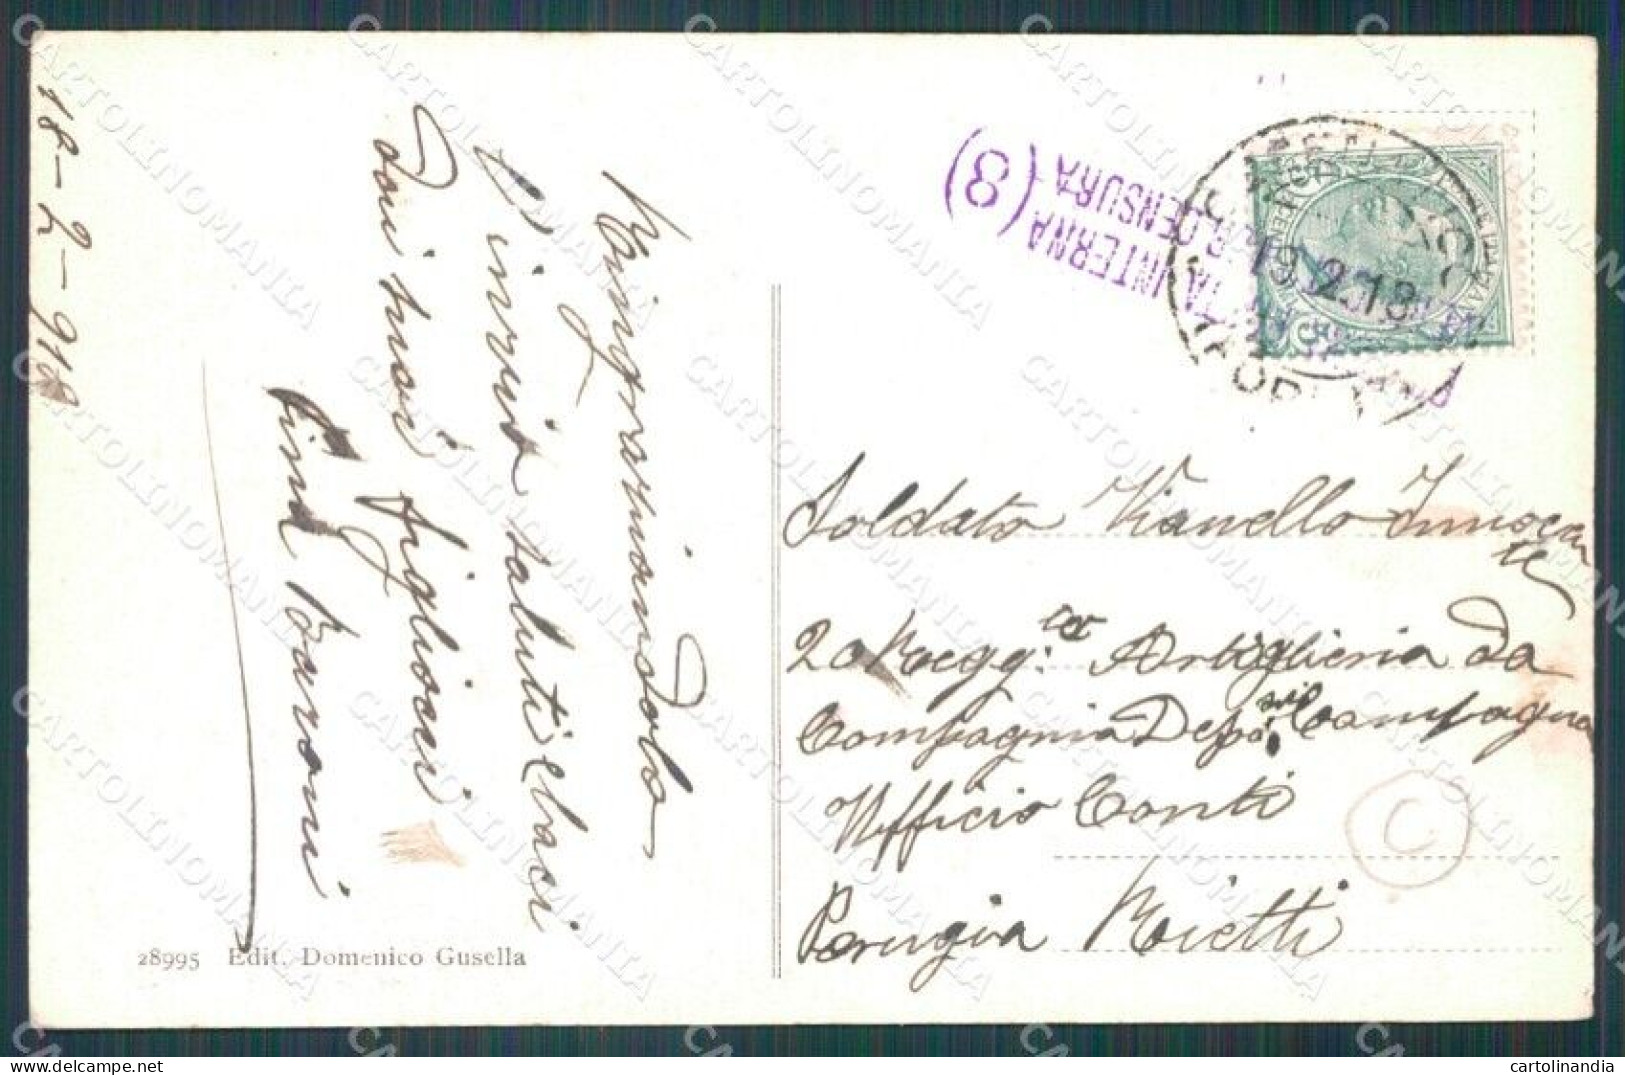 18-2-918
Ringraziandolo
L'invio saluti e baci
dai tuoi figliocci
Lina Baroni
28995 Edit. Domenico Gusella
(8)
INTERNA
CENSURA
19.2.18
Soldato Vianello Innocen
te
20 Regg. Artiglieria Da
Compagnia Campagna
Ufficio Conti
Perugia Rieti
C
CARTOLINOMANIA
cartolinandia